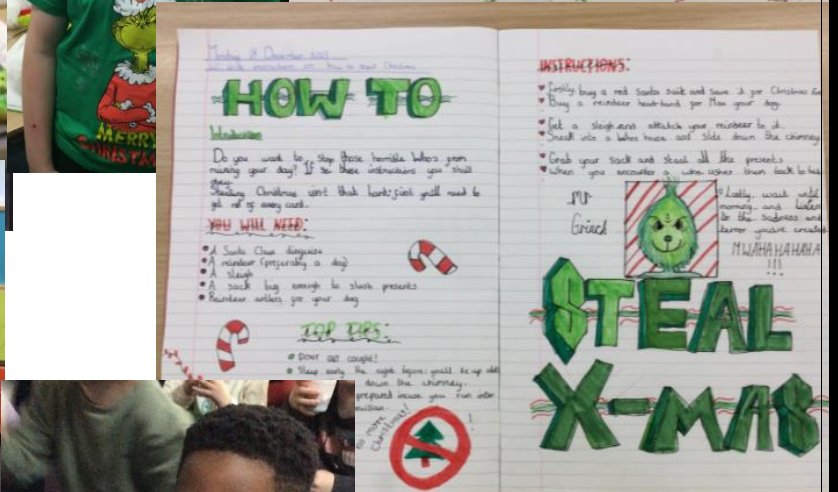 MERRY
CHRISTM
Monday 18 December 2023
HOW TO
Introduction
Do you want to stop those horrible Who's from
ruining your day? If so these instructions you shall
obey.
Stealing Christmas isn't that hard: first you'll need to
get rid of every card.
YOU WILL NEED:
A Santa Claus disguise
A reindeer (preferably a dog)
A sleigh
A sack big enough to presents
Reindeer antlers for your dog
TOP TIPS:
DON'T GET caught!
Sleep early the night before: you'll be up
down the chimney.
prepared incase you run into
no more
Christmas!
!
INSTRUCTIONS:
Firstly, buy a red santa suit and save it for Christmas
Buy a reindeer headband for Max your dog.
Get a sleigh and attatch your reindeer to it.
Sneak into a Who's house and slide down the chimney
Grab your sack and steal all the presents
When you encounter a who, usher them back to
Mr
Grinch
Lastly, wait until
morning and listen
to the sadness and
terror you've created
MWAHAHAHAHA
!!!
STEAL
X-MAS